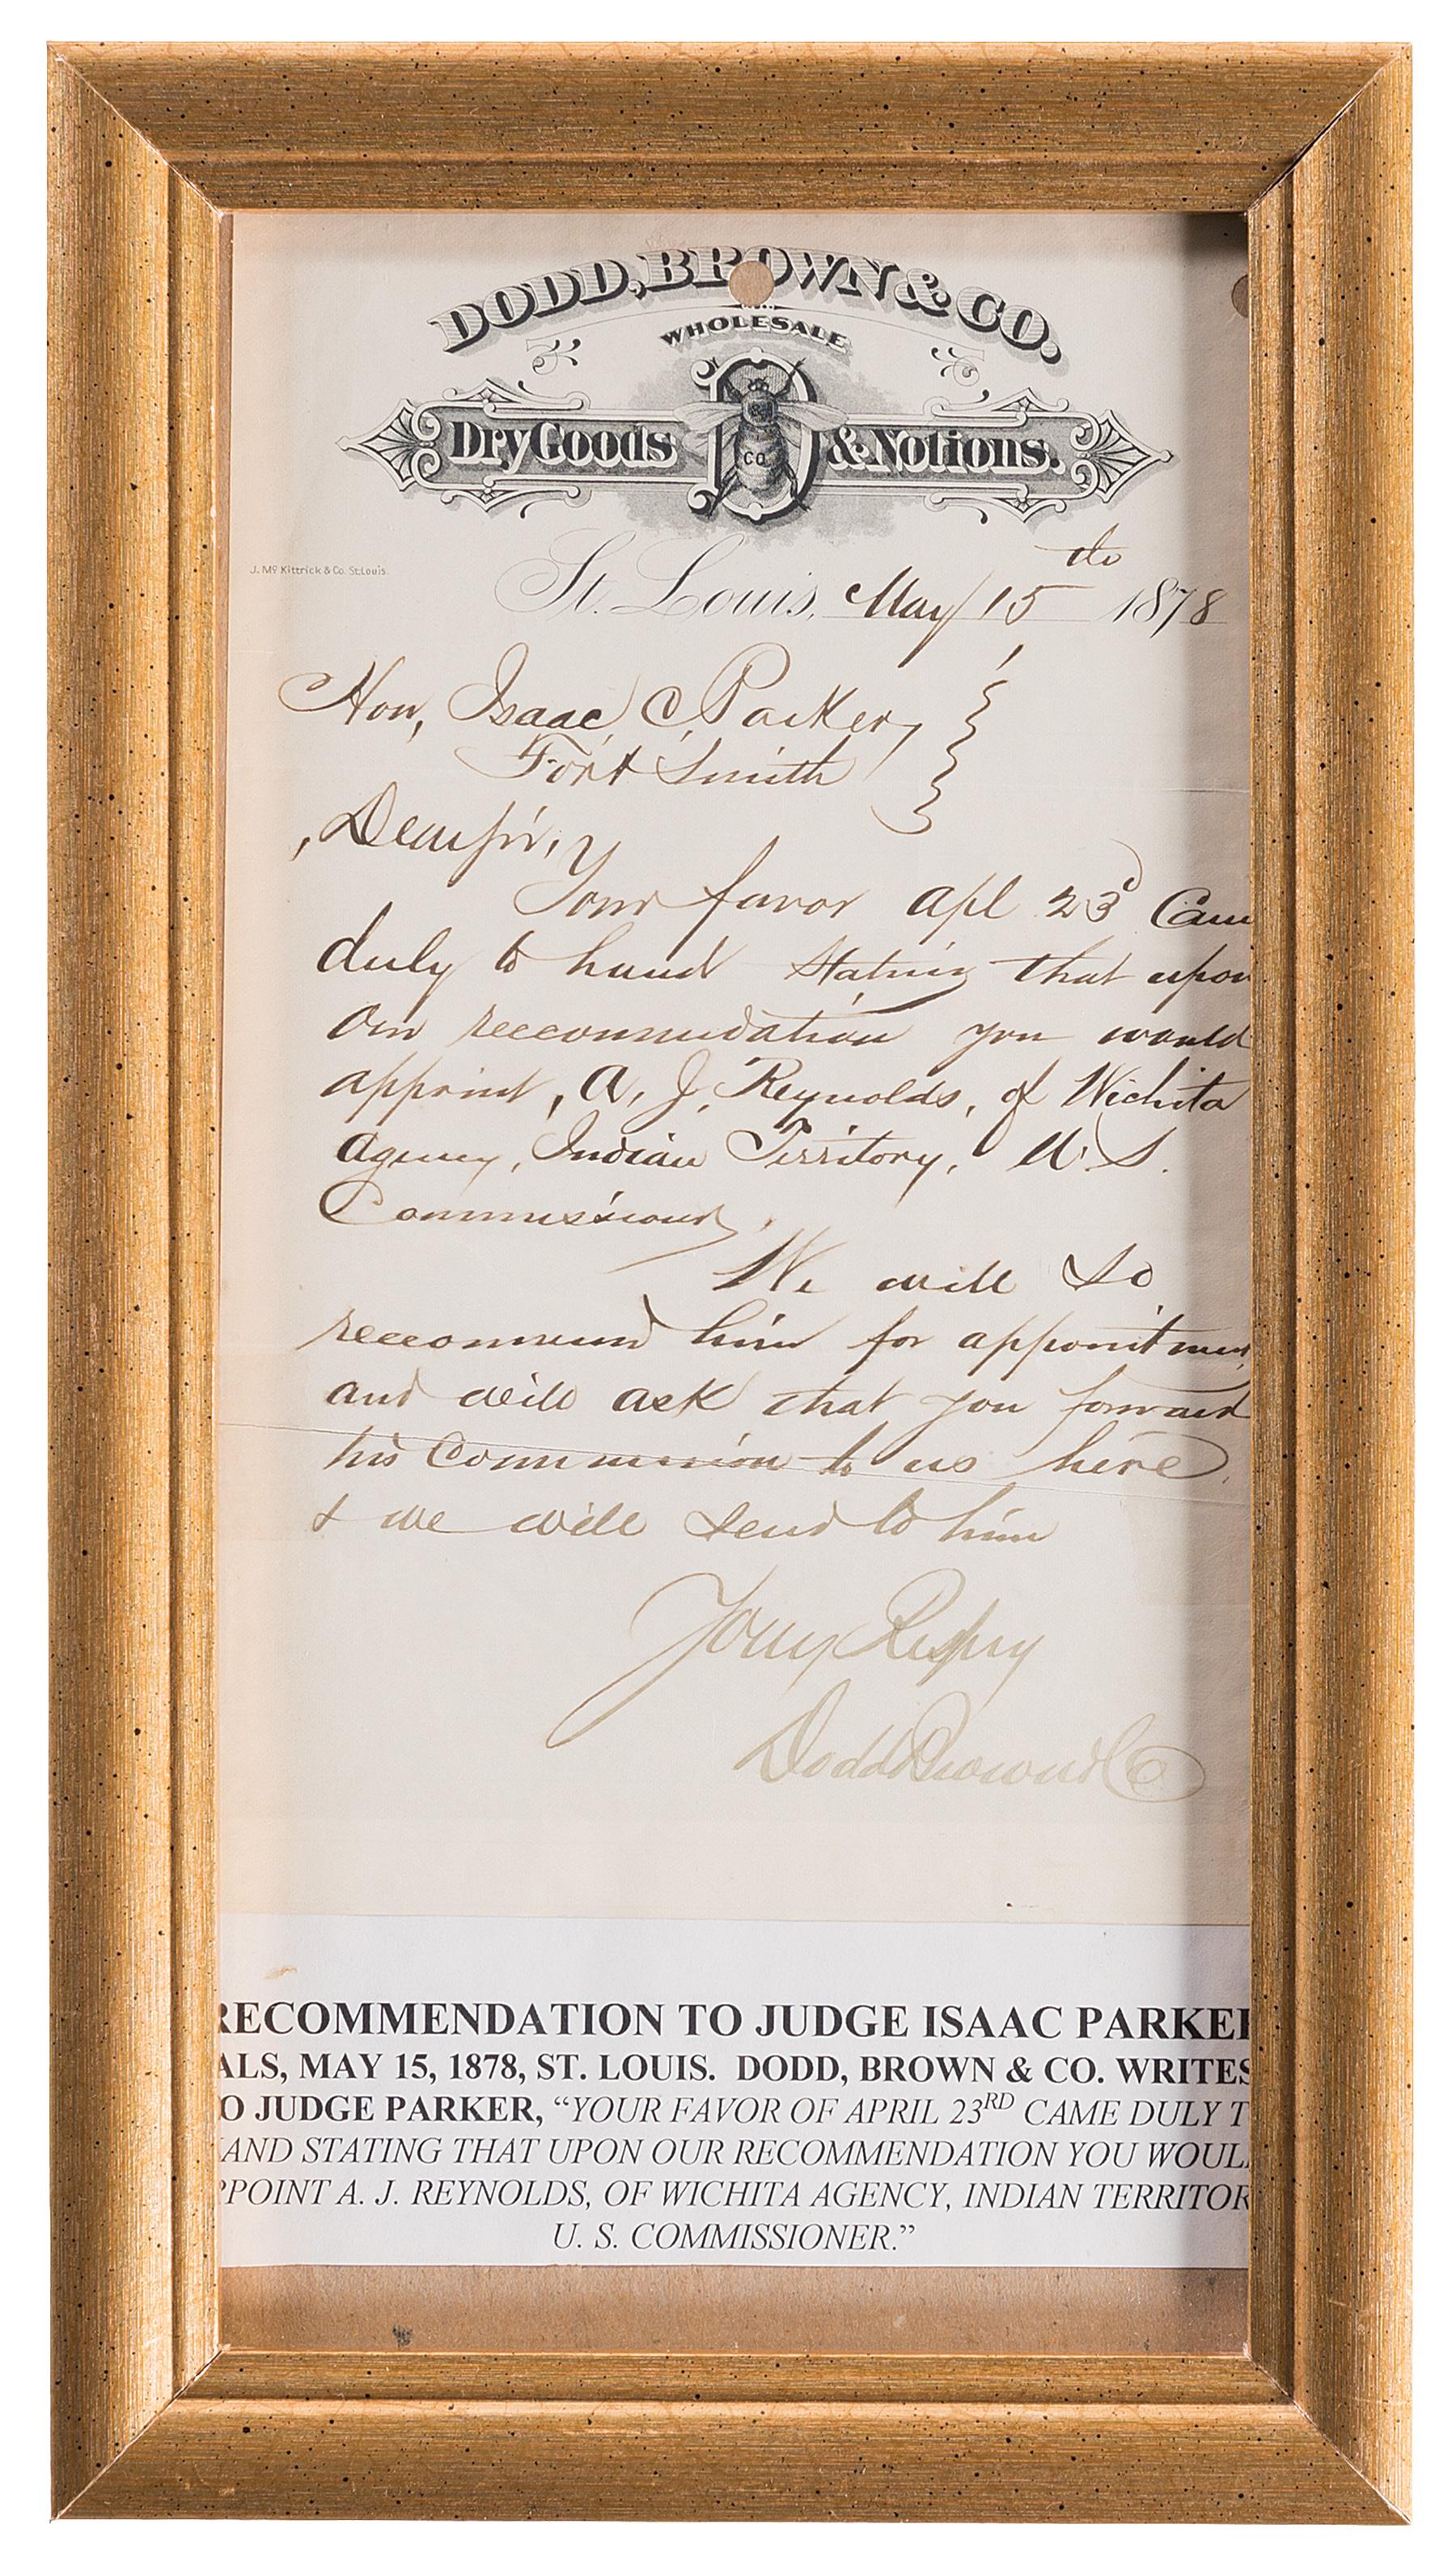 DODD, BROWN & CO.
WHOLESALE
Dry Goods & Notions.
CO.
J. McKittrick & Co. St Louis.
St. Louis, May 15th 1878
Hon, Isaac C. Parker,
Fort Smith
Dear Sir,
Your favor apl 23d Cam
duly to hand stating that upon
our reccommendation you would
appoint, A. J. Reynolds, of Wichita
Agency, Indian Territory, U. S.
Commissioner,
We will so
reccommend him for appointmen
and will ask that you forward
his Commission to us here,
& we will send to him
Yours Respy
Dodd Brown & Co
RECOMMENDATION TO JUDGE ISAAC PARKER
ALS, MAY 15, 1878, ST. LOUIS. DODD, BROWN & CO. WRITES
O JUDGE PARKER, “YOUR FAVOR OF APRIL 23RD CAME DULY T
AND STATING THAT UPON OUR RECOMMENDATION YOU WOUL
PPOINT A. J. REYNOLDS, OF WICHITA AGENCY, INDIAN TERRITOR
U. S. COMMISSIONER.”